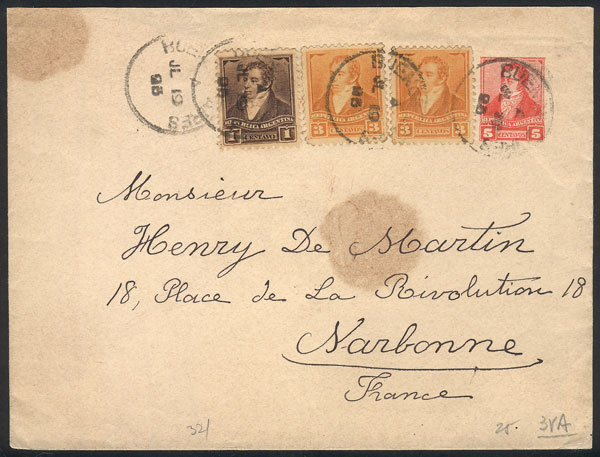 BUENOS AIRES
JL 19
95
REPUBLICA ARGENTINA
1 CENTAVO 1
REPUBLICA ARGENTINA
3 CENTAVOS 3
REPUBLICA ARGENTINA
3 CENTAVOS 3
REPUBLICA ARGENTINA
5 CENTAVOS 5
Monsieur
Henry De Martin
18, Place de La Révolution 18
Narbonne
France